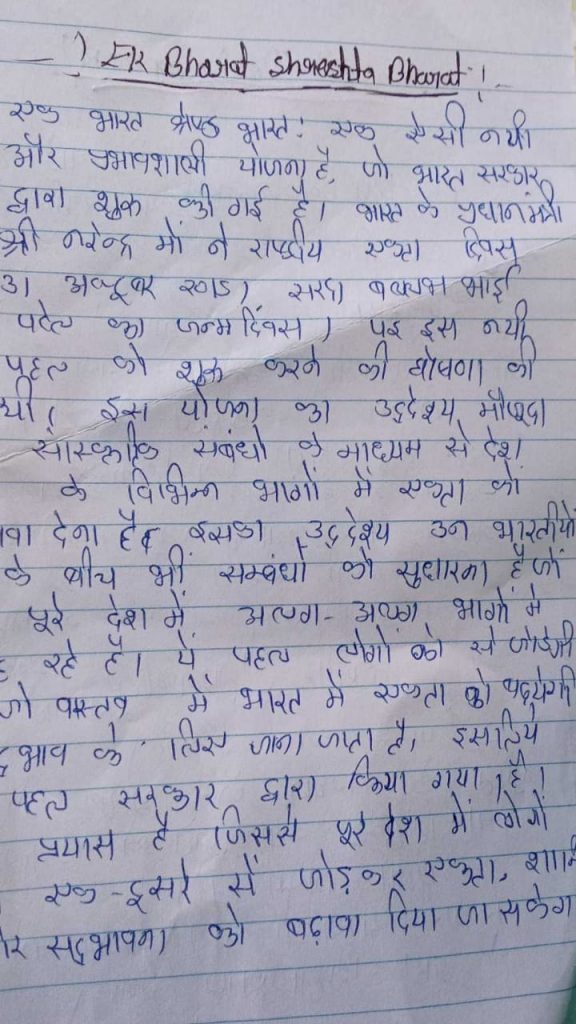 Ek Bharat Shreshta Bharat !
एक भारत श्रेष्ठ भारत: एक ऐसी नयी
और प्रभावशाली योजना है, जो भारत सरकार
द्वारा शुरू की गई है। भारत के प्रधानमंत्री
श्री नरेन्द्र मो ने राष्ट्रीय एकता दिवस
31 अक्टूबर 2015) सरदा वल्लभ भाई
पटेल का जन्म दिवस) पर इस नयी
पहल को शुरू करने की घोषणा की
थी। इस योजना का उद्देश्य मौजूदा
सांस्कृतिक संबंधो के माध्यम से देश
के विभिन्न भागों में एकता को
वा देना है। इसका उद्देश्य उन भारतीयों
के बीच भी सम्बंधों को सुधारना है जो
पूरे देश में अलग-अलग भागों में
रहे है। ये पहल लोगों को से जोड़ेगी
जो वास्तव में भारत में एकता को बढ़ायेगी
भाव के लिए जाना जाता है, इसलिये
पहल सरकार द्वारा किया गया है।
प्रयास है जिससे पूरे देश में लोगों
एक-दूसरे से जोड़कर एकता, शान्ति
ोर सद्भावना को बढ़ावा दिया जा सकेग